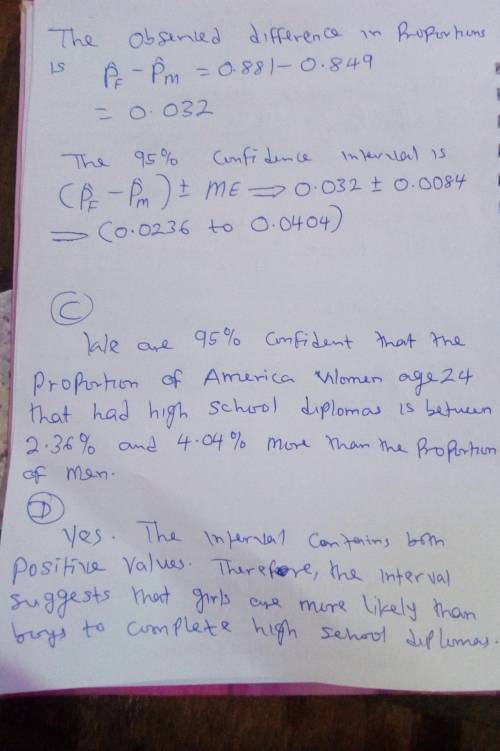 The Observed difference in Proportions
is P̂F - P̂M = 0.881 - 0.849
= 0.032
The 95% Confidence interval is
(P̂F - P̂M) ± ME ⇒ 0.032 ± 0.0084
⇒ (0.0236 to 0.0404)
C
We are 95% Confident that the
Proportion of America Women age 24
that had high school diplomas is between
2.36% and 4.04% more than the Proportion
of men.
D
Yes. The Interval Contains both
Positive Values. Therefore, the Interval
Suggests that girls are more likely than
boys to Complete high school diplomas.